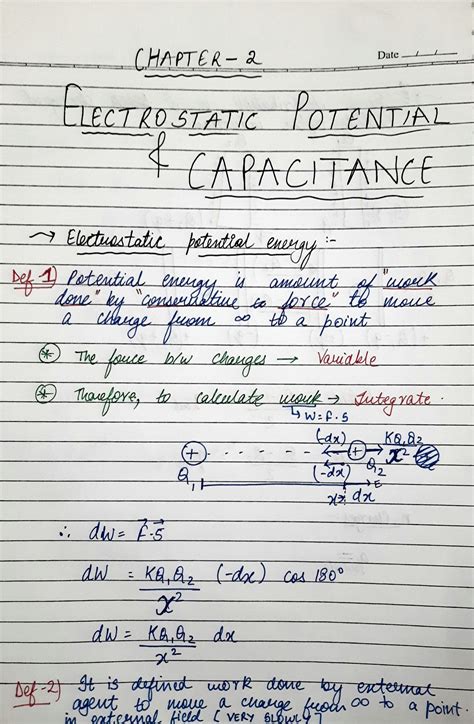 CHAPTER - 2
Date
ELECTROSTATIC POTENTIAL
& CAPACITANCE
→ Electrostatic potential energy :-
Def-1) Potential energy is amount of "work
done" by "conservative force" to move
a charge from ∞ to a point
* The force b/w charges → Variable
* Therefore, to calculate work → Integrate.
↳ W = F.S
(-dx) KQ₁Q₂
+ . . . . . . + x²
Q₁ (-dx) Q₂
x dx E
∴ dW = F⃗.S⃗
dW = KQ₁Q₂ (-dx) cos 180°
x²
dW = KQ₁Q₂ dx
x²
Def-2) It is defined work done by external
agent to move a charge from ∞ to a point
in external field [VERY SLOWLY]